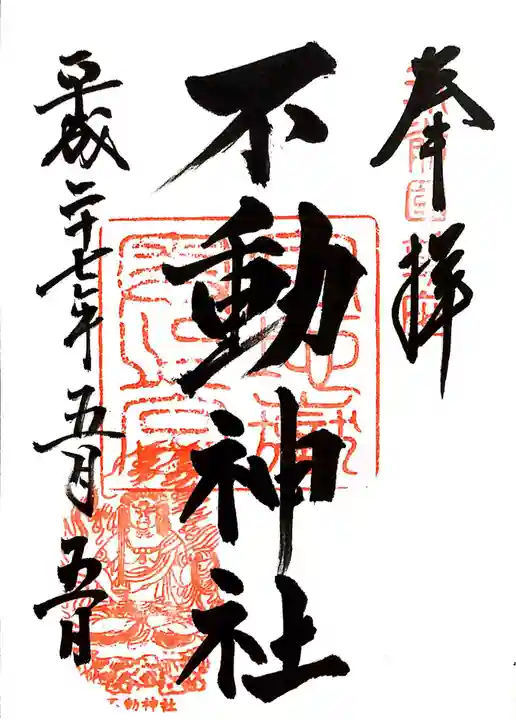 奉拝
不動神社
平成二十七年五月五日
不動神社